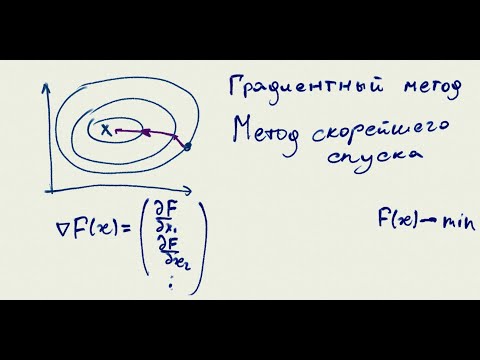 Градиентный метод
Метод скорейшего
спуска
x
∇F(x) = (∂F/∂x₁ ∂F/∂x₂ ⋮)
F(x) → min